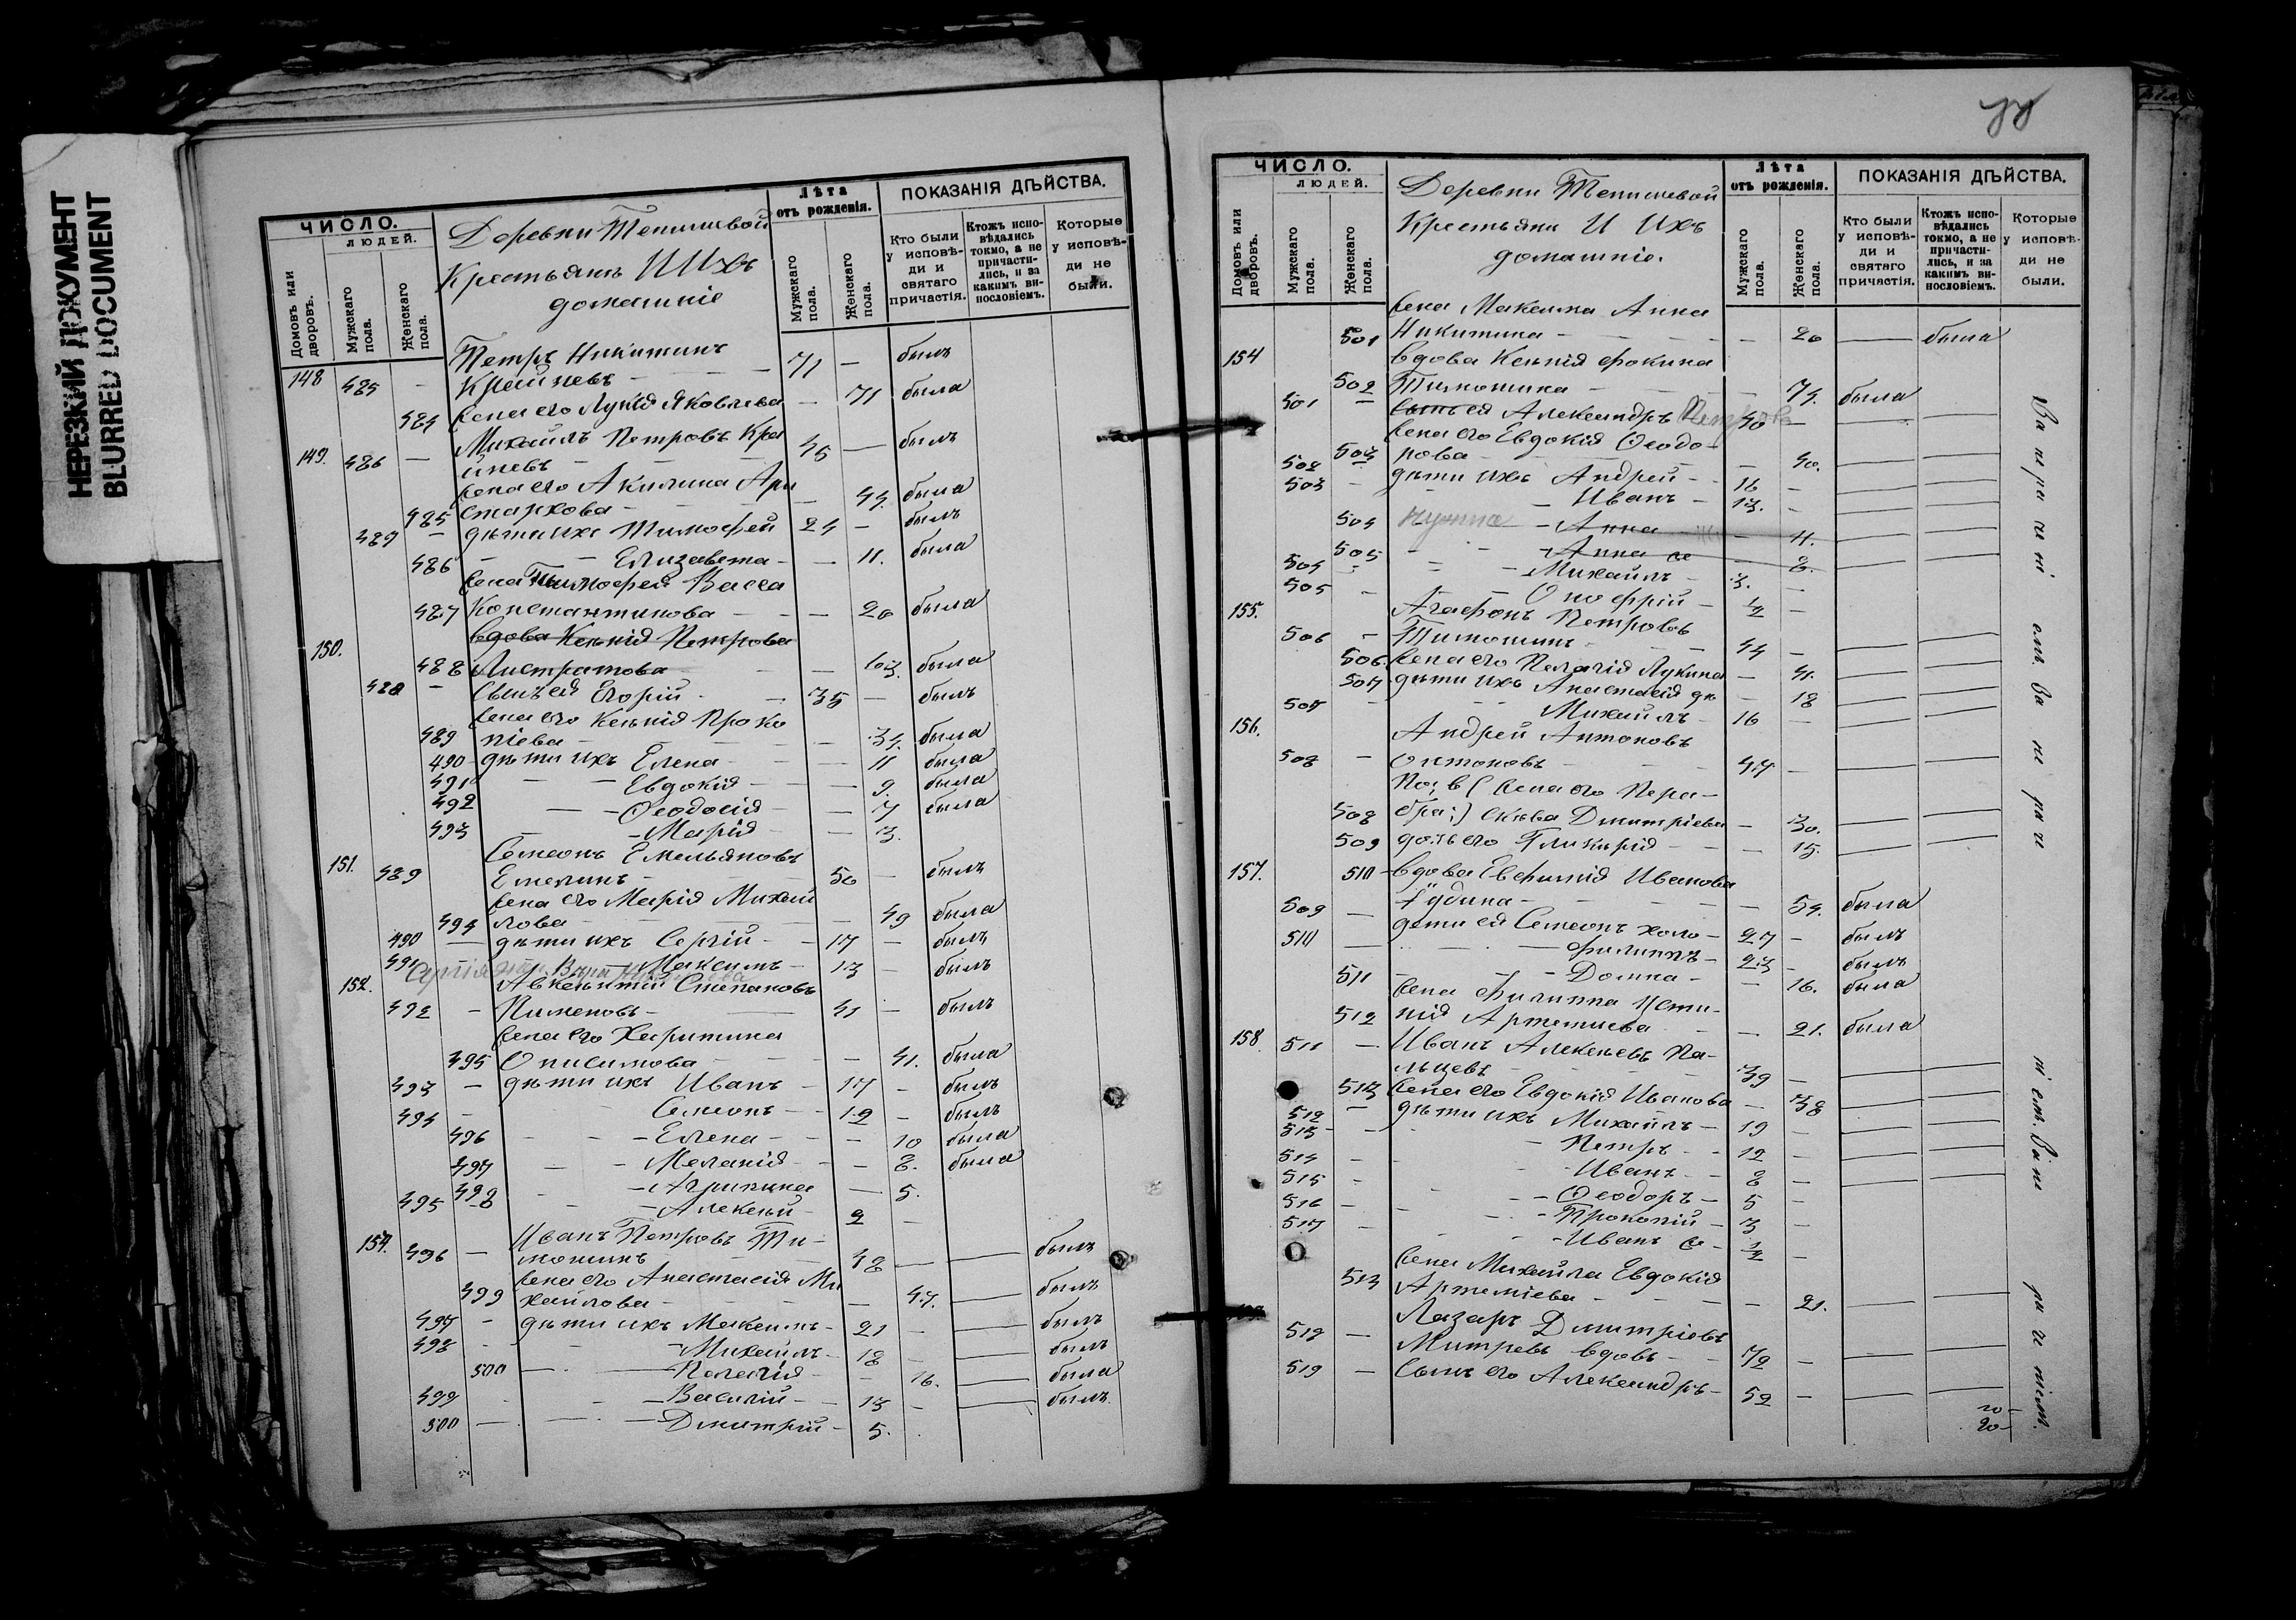 НЕРЕЗКИЙ ДОКУМЕНТ
BLURRED DOCUMENT
ЧИСЛО.
ЛЮДЕЙ.
Домовъ или дворовъ.
Мужскаго пола.
Женскаго пола.
Деревни
Крестьянъ И Ихъ
домашніе
Лѣта
отъ рожденія.
Мужскаго пола.
Женскаго пола.
ПОКАЗАНІЯ ДѢЙСТВА.
Кто были у исповѣди и святаго причастія.
Ктожъ исповѣдались токмо, а не причастились, и за какимъ винословіемъ.
Которые у исповѣди не были.
Петръ Никитинъ
148 485 — Крайневъ 71 — былъ
484 Жена его Лукія Яковлева — 71 была
Михаилъ Петровъ Кра
149. 486 — йневъ 45 — былъ
Жена его Акилина Ари
485 стархова — 44. была
487 — дѣти ихъ Тимофей 24 — былъ
486 Елизавета — 11. была
Жена Тимофея Васса
487 Константинова — 20 была
150. Вдова Ксенія Петрова
488 Листратова — 63. была
488 — Сынъ ея Егорій 35 — былъ
Жена его Ксенія Проко
489 піева — 34. была
490 дѣти ихъ Елена — 11 была
491 Евдокія — 9. была
492 Ѳеодосія — 7 была
493 Марія — 3.
Семеонъ Емельяновъ
151. 489 Емелинъ 50 — былъ
Жена его Марія Михаи
494 лова — 49 была
490 — дѣти ихъ Сергій 17 — былъ
491 Максимъ 13 — былъ
152. Авксентій Степановъ
492 — Пименовъ 41 — былъ
Жена его Харитина
495 Онисимова — 41. была
493 — дѣти ихъ Иванъ 17 — былъ
494 Семеонъ 12 — былъ
496 Елена — 10 была
497 Меланія — 8. была
498 Агрипина — 5.
495 Алексѣй 2 —
Иванъ Петровъ Ти-
496 — мошинъ 48 — былъ
Жена его Анастасія Ми
499 хайлова — 47. — былъ
497 — дѣти ихъ Максимъ 21 — былъ
498 Михаилъ 18 — былъ
500 Пелагія — 16. — была
499 Василій 13 — былъ
500 Дмитрій 5.
ЧИСЛО.
ЛЮДЕЙ.
Домовъ или дворовъ.
Мужскаго пола.
Женскаго пола.
Деревни
Крестьяни И Ихъ
домашніе.
Лѣта
отъ рожденія.
Мужскаго пола.
Женскаго пола.
ПОКАЗАНІЯ ДѢЙСТВА.
Кто были у исповѣди и святаго причастія.
Ктожъ исповѣдались токмо, а не причастились, и за какимъ винословіемъ.
Которые у исповѣди не были.
Жена Максима Анна
501 Никитина — 20 — была
154 Вдова Ксенія Фокина
502 Тимошина — 74. была
501 — Сынъ ея Александръ 40 —
Жена его Евдокія Ѳеодо-
503 рова — 40.
502 дѣти ихъ Андрей 16 —
503 — Иванъ 13. —
504 Анна — 11.
505 Анна — 8.
504 Михаилъ 3. —
505 Онофрій 1/2 —
155. Агафонъ Петровъ
506 — Тимошинъ 44 —
506. Жена его Пелагія Лукина — 41.
507 дѣти ихъ Анастасія — 18
507 — Михаилъ 16 —
156. Андрей Антоновъ
508 — Антоновъ 47 —
508 Дмитріева — 30.
509 дочь его Гликерія — 15.
157. 510 Вдова Евфимія Иванова
Юдина — 54. была
509 — дети ея Семеонъ холо- 27 — былъ
510 — Филиппъ 23 — былъ
511 Домна — 16. была
Жена Филиппа Усти-
512 нія Артемиева — 21. была
158 511 — Иванъ Алексѣевъ Па-
льцевъ 39 —
513 Жена его Евдокія Иванова — 38
512 — дѣти ихъ Михаилъ 19 —
513 — Петръ 12 —
514 — Иванъ 8 —
515 — Ѳеодоръ 5 —
516 — Прокопій 3 —
517 — Иванъ 1/2 —
Жена Михаила Евдокія
513 Артеміева — 21.
Лазарь Дмитріевъ
518 — Митревъ вдовъ 72 —
519 — Сынъ его Александръ 52 —
20